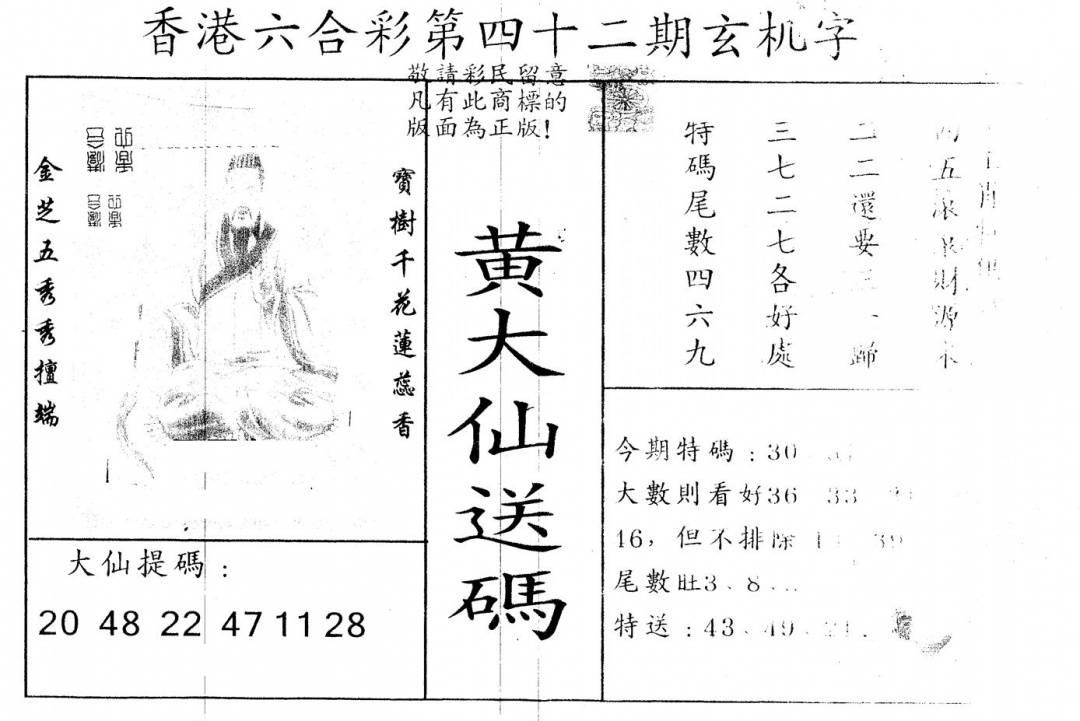 香港六合彩第四十二期玄机字
敬請彩民留意
凡有此商標的
版面為正版!
金芝五秀秀擅端
寶樹千花蓮蕊香
黄大仙送碼
大仙提碼:
20 48 22 47 11 28
五 財源
二二還要三
三七二七各好處
特碼尾數四六九
今期特碼:30
大數則看好36 33
16,但不排除 39
尾數旺3、8
特送:43、49、21.